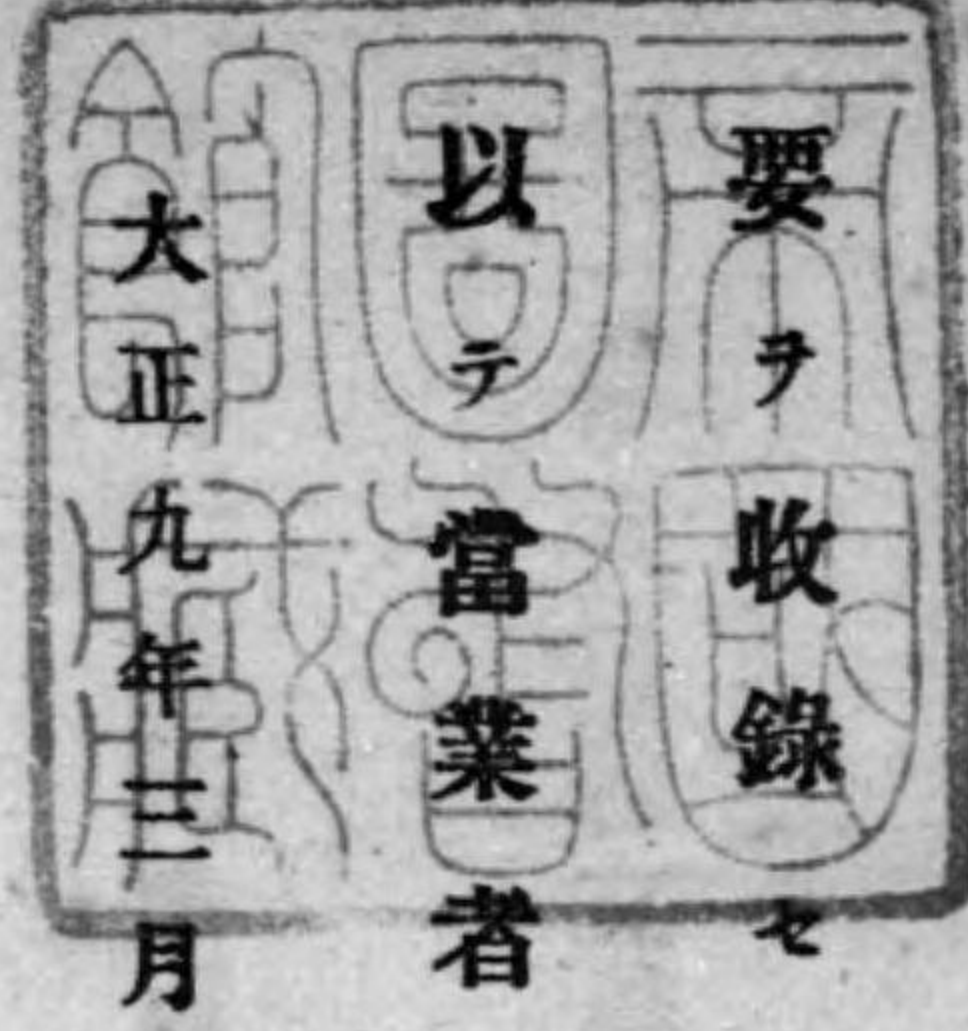 要ヲ收錄セ
以テ當業者
大正九年三月